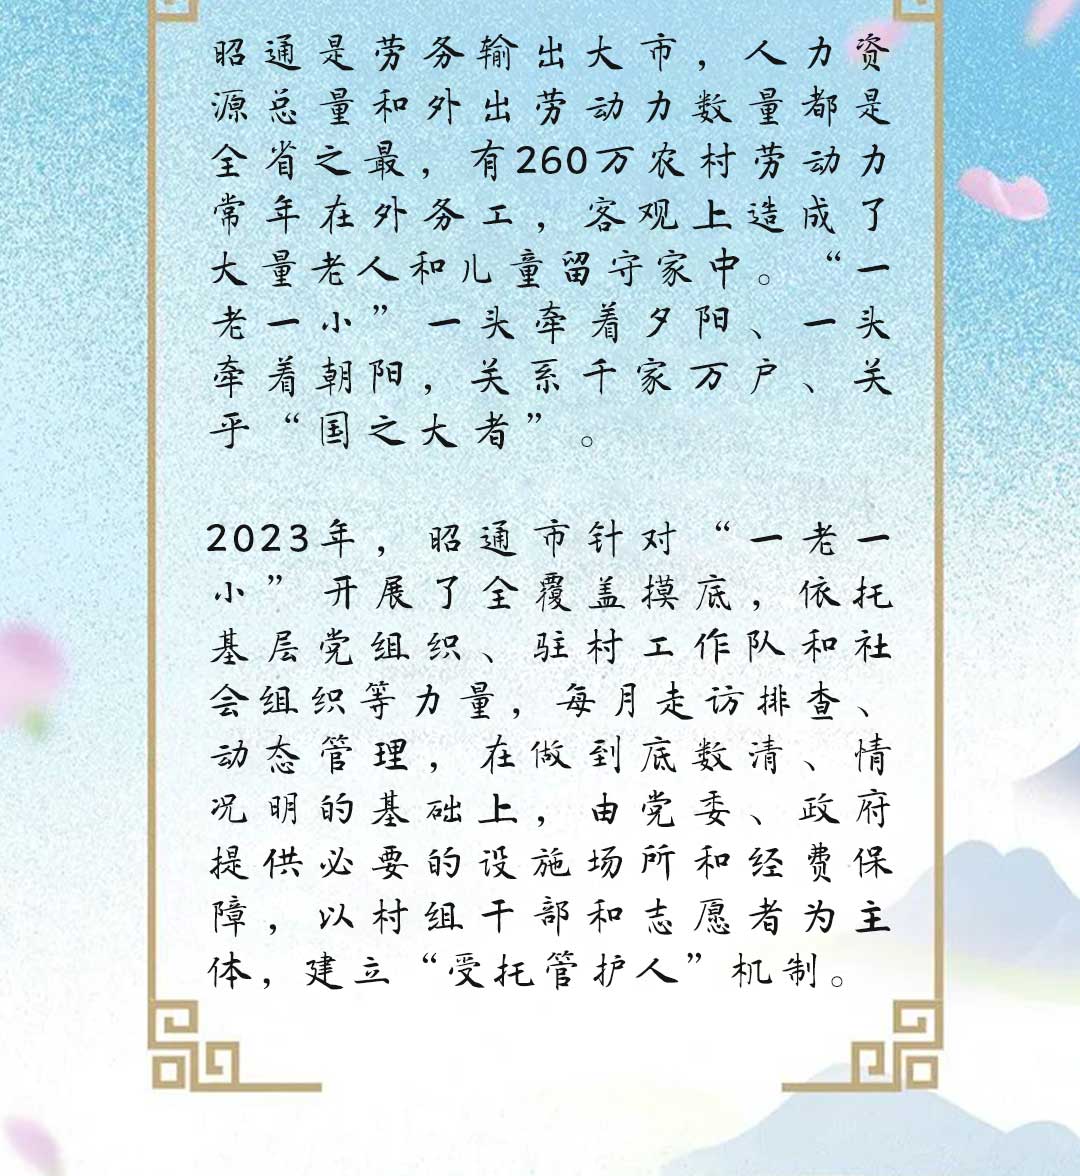 昭通是劳务输出大市，人力资
源总量和外出劳动力数量都是
全省之最，有260万农村劳动力
常年在外务工，客观上造成了
大量老人和儿童留守家中。“一
老一小”一头牵着夕阳、一头
牵着朝阳，关系千家万户、关
乎“国之大者”。
2023年，昭通市针对“一老一
小”开展了全覆盖摸底，依托
基层党组织、驻村工作队和社
会组织等力量，每月走访排查、
动态管理，在做到底数清、情
况明的基础上，由党委、政府
提供必要的设施场所和经费保
障，以村组干部和志愿者为主
体，建立“受托管护人”机制。